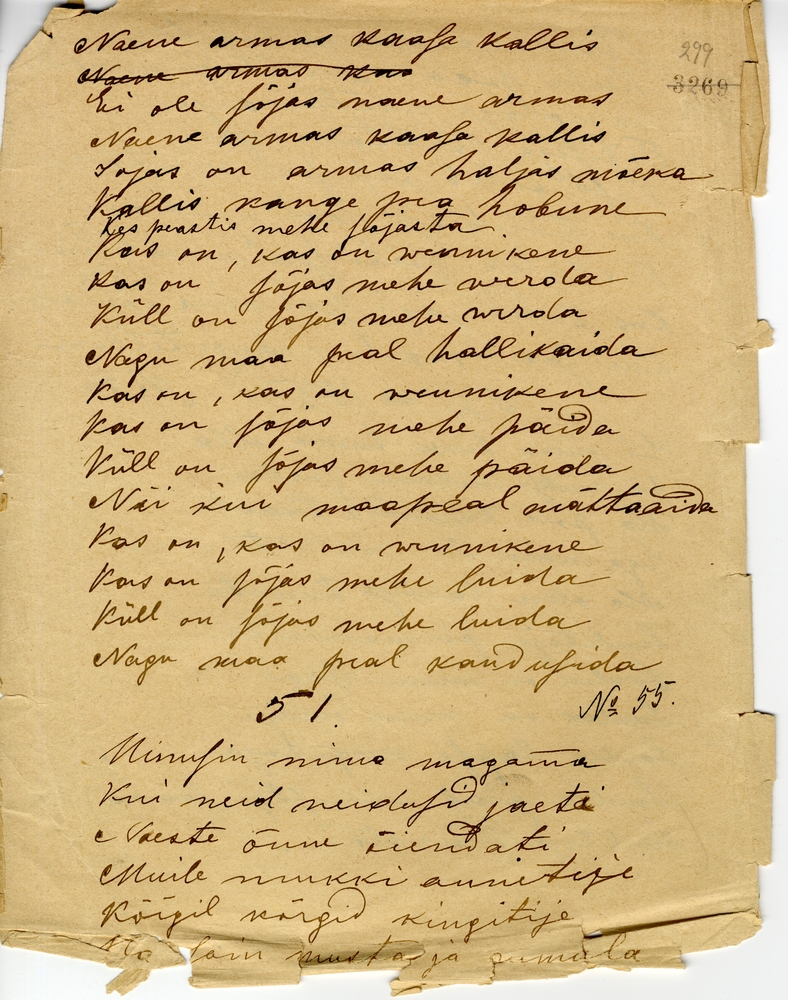 Naene armas kaasa kallis
299
Naene armas kas
3269
Ei ole sõjas naene armas
Naene armas kaasa kallis
Sojas on armas haljas mõeka
Kallis kange pea hobune
Kes peastis mehe sõjasta
Kas on, kas on wennikene
Kas on sõjas mehe werda
Küll on sõjas mehe werda
Nagu maa peal hallikaida
Kas on, kas on wennikene
Kas on sõjas mehe päida
Küll on sõjas mehe päida
Nii kui maapeal mättaaida
Kas on, kas on wennikene
Kas on sõjas mehe luida
Küll on sõjas mehe luida
Nagu maa peal kandusida
51 № 55.
Uinusin nina magama
Kui neid neidusid jaeti
Naeste õnne õiendati
Muile mukki annetije
Kõigil kõrgid kingitije
Ma sain musta ja rumala